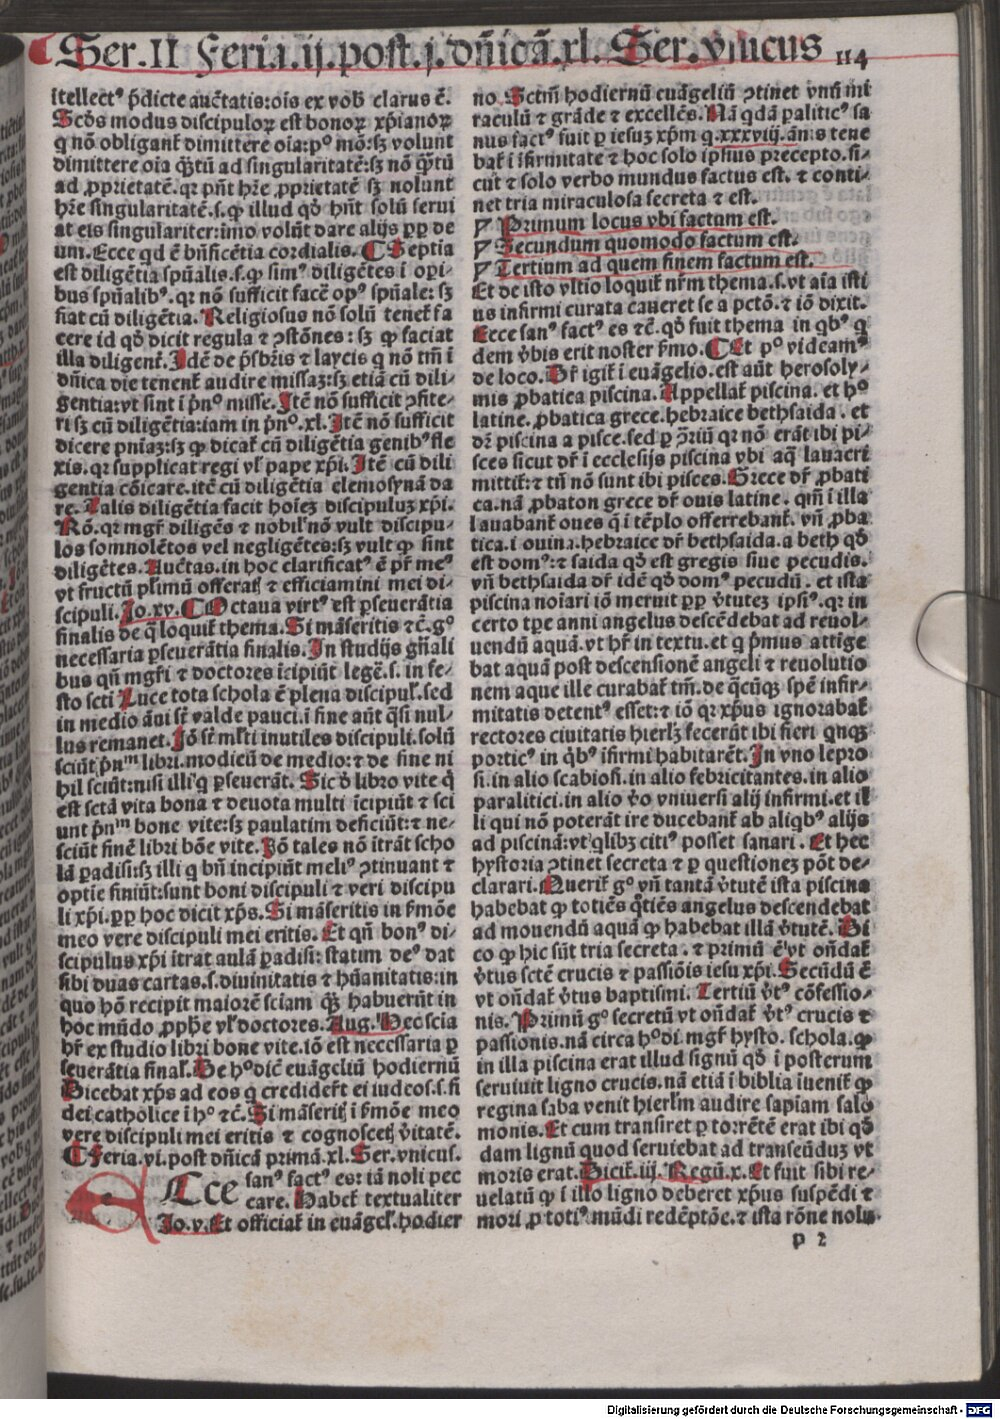 Ser.II Feria.ij.post.j.dn̄icā.xl. Ser.vnicus 114
itellectꝰ p̄dicte auc̄tatis:oīs ex vob̄ clarus ē.
Scōs modus discipuloꝝ est bonoꝝ xp̄ianoꝝ
q nō obligant̄ dimittere oīa:pº mō:sꝫ volunt
dimittere oīa q̄ꝫtū ad singularitatē:sꝫ nō q̄ꝫtū
ad ꝓprietatē.qꝛ pn̄t hr̄e ꝓprietatē sꝫ nolunt
hr̄e singularitatē.s.ꝙ illud qd̓ hn̄t solū serui
at eis singulariter:imo volūt dare alijs ꝓp de
um.Ecce qd ē bn̄ficētia cordialis. Septia
est diligētia sp̄ualis.s.ꝙ simꝰ diligētes ī ope
bus sp̄ualibꝰ.qꝛ nō sufficit facē opꝰ sp̄uale:sꝫ
fiat cū diligētia.Religiosus nō solū tenet̄ fa
cere id qd̓ dicit regula ⁊ ↄstōnes:sꝫ ꝙ faciat
illa diligent̄.Idē de p̄sbr̄is ⁊ laycis q nō tm̄ ī
dn̄ica die tenent̄ audire missaꝫ:sꝫ etiā cū dili⸗
gentia:vt sint ī p̄nº misse.Itē nō sufficit ↄfite⸗
ri sꝫ cū diligētia:iam in p̄nº.xl.Itē nō sufficit
dicere pn̄iaꝫ:sꝫ ꝙ dicat̄ cū diligētia genibꝰ fle
xis.qꝛ supplicat regi vl̓ pape xp̄i.Itē cū dili
gentia cōicare.itē cū diligētia elemosynā da
re.Talis diligētia facit hoīeꝫ discipuluꝫ xp̄i.
Rō.qꝛ mgr̄ diligēs ⁊ nobil̓ nō vult discipu⸗
los somnolētos vel negligētes:sꝫ vult ꝙ sint
diligētes.Auc̄tas.in hoc clarificatꝰ ē pr̄ meꝰ
vt fructū pl̓imū offeratꝫ ⁊ efficiamini mei di⸗
scipuli.Jo.xv. Octaua virtꝰ est ꝑseuerātia
finalis de q̄ loquit̄ thema.Si māseritis ⁊c̄.gº
necessaria ꝑseuerātia finalis.In studijs gn̄ali
bus qn̄ mgr̄i ⁊ doctores īcipiūt legē.s. in fe⸗
sto scti Luce tota schola ē plena discipul̓.sed
in medio āni st̄ valde pauci.ī fine aūt q̄si nul⸗
lus remanet.Iō st̄ ml̓ti inutiles discipuli.solū
sciūt p̄nᵐ libri.modicū de medio:⁊ de fine ni
hil sciūt:nisi illi q ꝑseuerāt. Sic d̓ libro vite q̓
est sctā vita bona ⁊ deuota multi īcipiūt ⁊ sci
unt p̄nᵐ bone vite:sꝫ paulatim deficiūt:⁊ ne⸗
sciūt finē libri bōe vite.Iō tales nō ītrāt scho
lā ꝑadisi:sꝫ illi q bn̄ incipiūt meliꝰ ↄtinuant ⁊
optie finiūt:sunt boni discipuli ⁊ veri discipu
li xp̄i.ꝓp hoc dicit xp̄s.Si māseritis in f̄mōe
meo vere discipuli mei eritis. Et qn̄ bonꝰ di⸗
scipulus xp̄i ītrat aulā ꝑadisi:statim deꝰ dat
sibi duas cartas.s.diuinitatis ⁊ hūanitatis:in
quo hō recipit maiorē sciam q̄ꝫ habuerūt in
hoc mūdo ꝓphe vl̓ doctores.Aug.Hec scia
hr̄ ex studio libri bone vite.iō est necessaria ꝑ
seuerātia final̓.De hºdic̄ euāgeliū hodiernū
Dicebat xp̄s ad eos q credidert̄ ei iudeos.s.fi
dei catholice ī hº ⁊c̄.Si māseritꝫ ī f̄mōe meo
vere discipuli mei eritis ⁊ cognoscetꝫ v̓itatē.
Feria.vi.post dn̄icā primā.xl.Ser.vnicus.
Ecce sanꝰ factꝰ es: iā noli pec
care. Habet̄ textualiter
Jo.v.Et officiat̄ in euāgel̓.hodier
no.Sctm̄ hodiernū euāgeliū ↄtinet vnū mi
raculū ⁊ grāde ⁊ excellēs.Nā qdā paliticꝰ sa
nus factꝰ fuit ꝑ iesuꝫ xp̄m q.xxxviij.ān̄is tene
bat̄ ī īfirmitate ⁊ hoc solo ipsius precepto.si⸗
cut ⁊ solo verbo mundus factus est. ⁊ conti⸗
net tria miraculosa secreta ⁊ est.
Primum locus vbi factum est.
Secundum quomodo factum est.
Tertium ad quem finem factum est.
Et de isto vltio loquit̄ nr̄m thema.s.vt aīa isti
us infirmi curata caueret se a pctō.⁊ iō dixit.
Ecce sanꝰ factꝰ es ⁊c̄.qd̓ fuit thema in qbꝰ q
dem v̓bis erit noster f̄mo. Et pº videamꝰ
de loco.Dr̄ igit̄ ī euāgelio.est aūt herosoly⸗
mis ꝓbatica piscina.Appellat̄ piscina. et hº
latine.ꝓbatica grece.hebraice bethsaida. et
dr̄ piscina a pisce.sed ꝑ ↄ̄riū qꝛ nō erāt ibi pi⸗
sces sicut dr̄ ī ecclesijs piscina vbi aq̄ lauacri
mittit̄:⁊ tn̄ nō sunt ibi pisces.Grece dr̄ ꝓbati
ca.nā ꝓbaton grece dr̄ ouis latine. qm̄ ī illa
lauabant̄ oues q̄ ī tēplo offerrebant̄. vn̄ ꝓba
tica.i ouina.hebraice dr̄ bethsaida.a beth qd̓
est domꝰ:⁊ saida qd̓ est gregis siue pecudis.
vn̄ bethsaida dr̄ idē qd̓ domꝰ pecudū. et ista
piscina noīari iō meruit ꝓp v̓tuteꝫ ipsiꝰ.qꝛ in
certo tꝑe anni angelus descēdebat ad reuol⸗
uendū aquā.vt hr̄ in textu.et q p̄mus attige
bat aquā post descensionē angeli ⁊ reuolutio
nem aque ille curabat̄ tm̄.de q̄cūqꝫ spē infir⸗
mitatis detentꝰ esset:⁊ iō qꝛ xp̄us ignorabat̄
rectores ciuitatis hierl̓ꝫ fecerūt ibi fieri qnqꝫ
porticꝰ in qbꝰ īfirmi habitarēt.In vno lepro
si.in alio scabiosi.in alio febricitantes.in alio
paralitici.in alio v̓o vniuersi alij infirmi.et il
li qui nō poterāt ire ducebant̄ ab aliqbꝰ alijs
ad piscinā:vt qlibꝫ citiꝰ posset sanari. Et hec
hystoria ↄtinet secreta ⁊ ꝑ questioneꝫ pōt de⸗
clarari.Querit̄ gº vn̄ tantā v̓tutē ista piscina
habebat ꝙ totiēs q̄tiēs angelus descendebat
ad mouendū aquā ꝙ habebat illā v̓tutē. Di
co ꝙ hic sūt tria secreta. ⁊ primū ē vt on̄dat̄
v̓tus sctē crucis ⁊ passiōis iesu xp̄i.Secūdū ē
vt on̄dat̄ v̓tus baptismi. Tertiū v̓tꝰ cōfessio⸗
nis. Primū gº secretū vt on̄dat̄ v̓tꝰ crucis ⁊
passionis.nā circa hºdi mgr̄ hysto.schola.ꝙ
in illa piscina erat illud signū qd̓ ī posterum
seruiuit ligno crucis.nā etiā ī biblia īuenit̄ ꝙ
regina saba venit hierl̓m audire sapiam salo
monis.Et cum transiret ꝑ to:rētē erat ibi qd̓
dam lignū quod seruiebat ad transeūduꝫ vt
moris erat.Dicit̄.iij.Regū.x.Et fuit sibi re⸗
uelatū ꝙ ī illo ligno deberet xp̄us suspēdi ⁊
mori ꝓ totiꝰ mūdi redēptōe.⁊ ista rōne nolu⸗
p 2
Digitalisierung gefördert durch die Deutsche Forschungsgemeinschaft - DFG